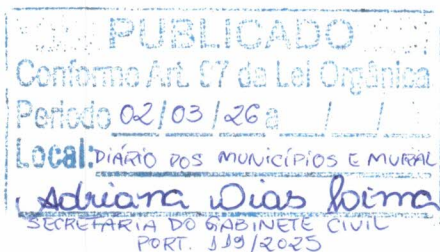 PUBLICADO
Conforme Art. 97 da Lei Orgânica
Periodo 02/03/26 a / /
Local: DIÁRIO DOS MUNICÍPIOS E MURAL
Adriana Dias
SECRETARIA DO GABINETE CIVIL
PORT. 119/2025